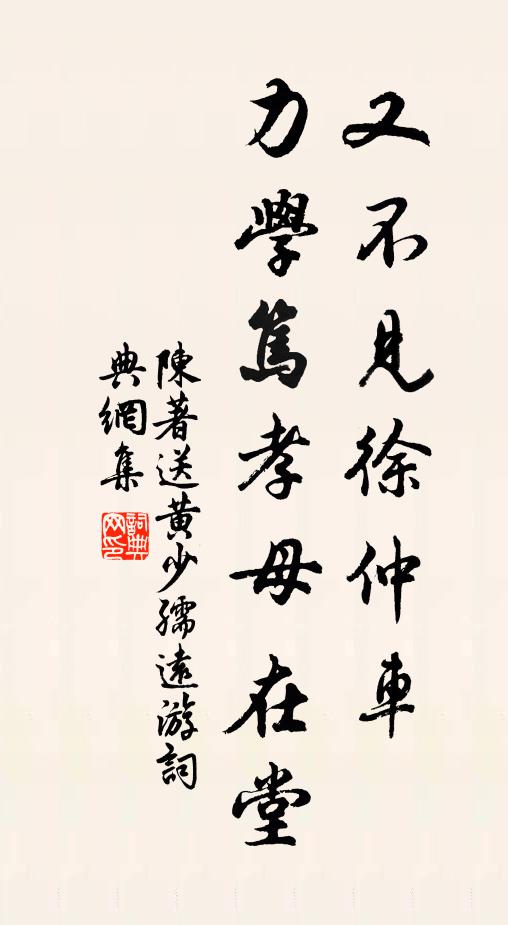 又不見徐仲車
力學篤孝母在堂
陳著送黃少孺遠游詞
典網集
詞典網印